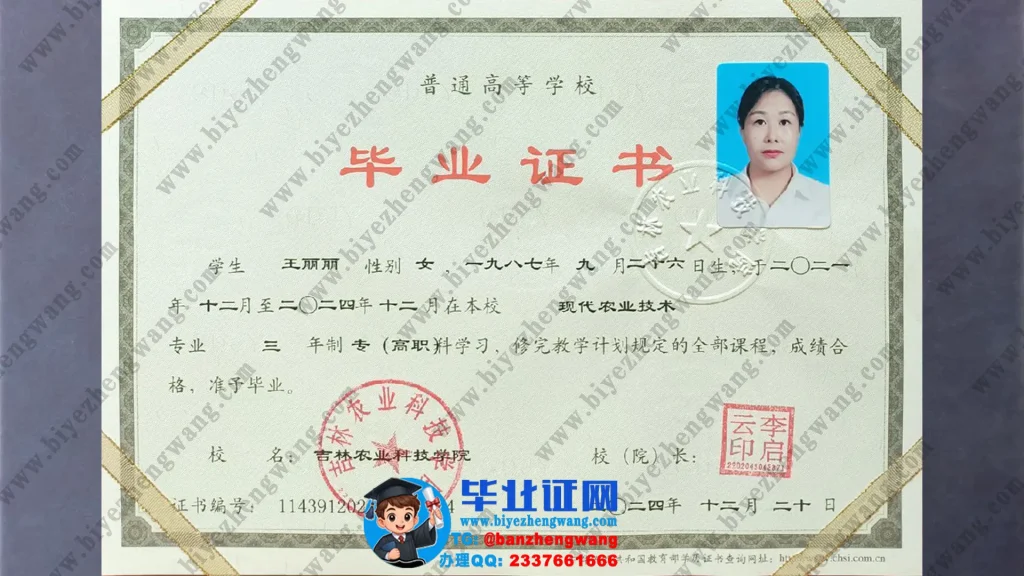 普通高等学校
毕业证书
学生 王丽丽 性别 女 ，一九八七年 九 月二十六日生，于二〇二一
年 十二月至二〇二四年 十二 月在本校 现代农业技术
专业 三 年制 专（高职）科学习，修完教学计划规定的全部课程，成绩合
格，准予毕业。
吉林农业科技学院
校 名：吉林农业科技学院 校（院）长：
李启云印
证书编号：114391202 〇二四年 十二月 二十日
毕业证网
www.biyezhengwang.com
TG: @banzhengwang
办理QQ: 2337661666
共和国教育部学历证书查询网址：
www.biyezhengwang.com